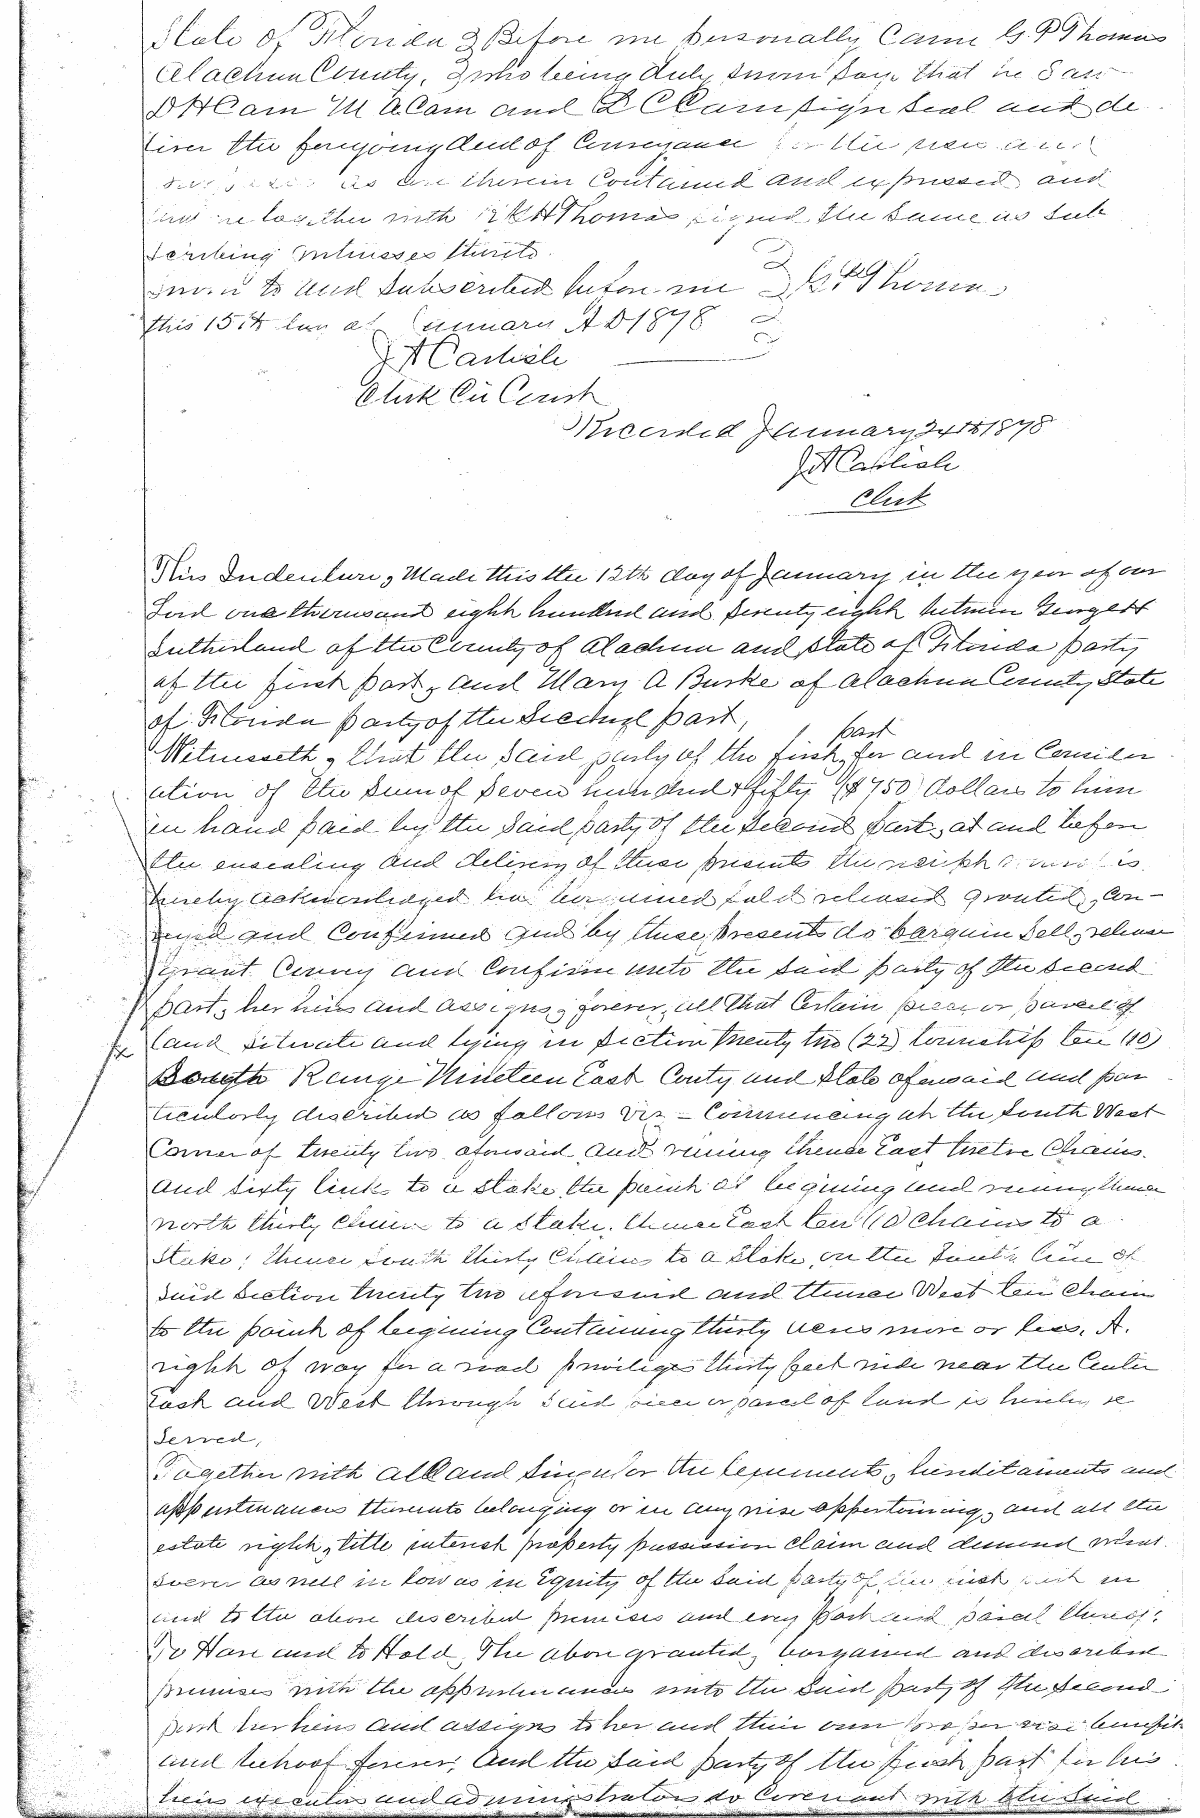 State of Florida } Before me personally Came G. P Thomas
Alachua County, } who being duly sworn says that he Saw
D H Cam M A Cam and D C Cam sign Seal and de
liver the foregoing deed of Conveyance for the uses and
as are therein Contained and expressed and
that he together with H Thomas signed the Same as Sub
scribing Witnesses thereto.
sworn to and subscribed before me } G. P Thomas
this 15th day of January A D 1878 }
J A Carlisle
Clerk Cir Court
Recorded January 24th 1878
J A Carlisle
Clerk
This Indenture, Made this the 12th day of January in the year of our
Lord one thousand eight hundred and seventy eight between George H
Sutherland of the County of Alachua and State of Florida party
of the first part, and Mary A Burke of Alachua County State
of Florida party of the Second part,
part
Witnesseth, that the Said party of the first, for and in Consider
ation of the Sum of Seven hundred & fifty ($750) dollars to him
in hand paid by the Said party of the Second part, at and before
the ensealing and delivery of these presents the receipt whereof is
hereby acknowledged has bargained sold released granted, Con-
veyed and Confirmed and by these presents do bargain Sell, release
grant Convey and Confirm unto the Said party of the Second
part, her heirs and assigns, forever, all that Certain piece or parcel of
land Situate and lying in Section twenty two (22) township ten (10)
South Range Nineteen East Conty and State aforesaid and par
ticularly described as follows viz - Commencing at the South West
Corner of twenty two aforesaid and runing thence East twelve Chains
and Sixty links to a stake the point of begining and runing thence
north thirty Chains to a Stake, thence East ten (10 Chains to a
Stake; thence South thirty Chains to a Stake on the South line of
Said Section twenty two aforesaid and thence West ten Chain
to the point of begining Containing thirty acres more or less. A.
right of way for a road priviliges thirty feet wide near the Center
East and West through Said piece or parcel of land is hereby re
Served,
Together with all and Singular the tenements, hereditaments and
appurtenances thereunto belonging or in any wise appertaining, and all the
estate right, title interest property possession Claim and demand what
soever as well in law as in Equity of the Said party of the first part in
and to the above described premises and every part and parcel thereof:
To Have and to Hold, The above granted, bargained and described
premises with the appurtenances unto the Said party of the Second
part her heirs and assigns to her and their own proper use benefit
and behoof forever; And the Said party of the first part for his
heirs executors and administrators do Covenant with the Said